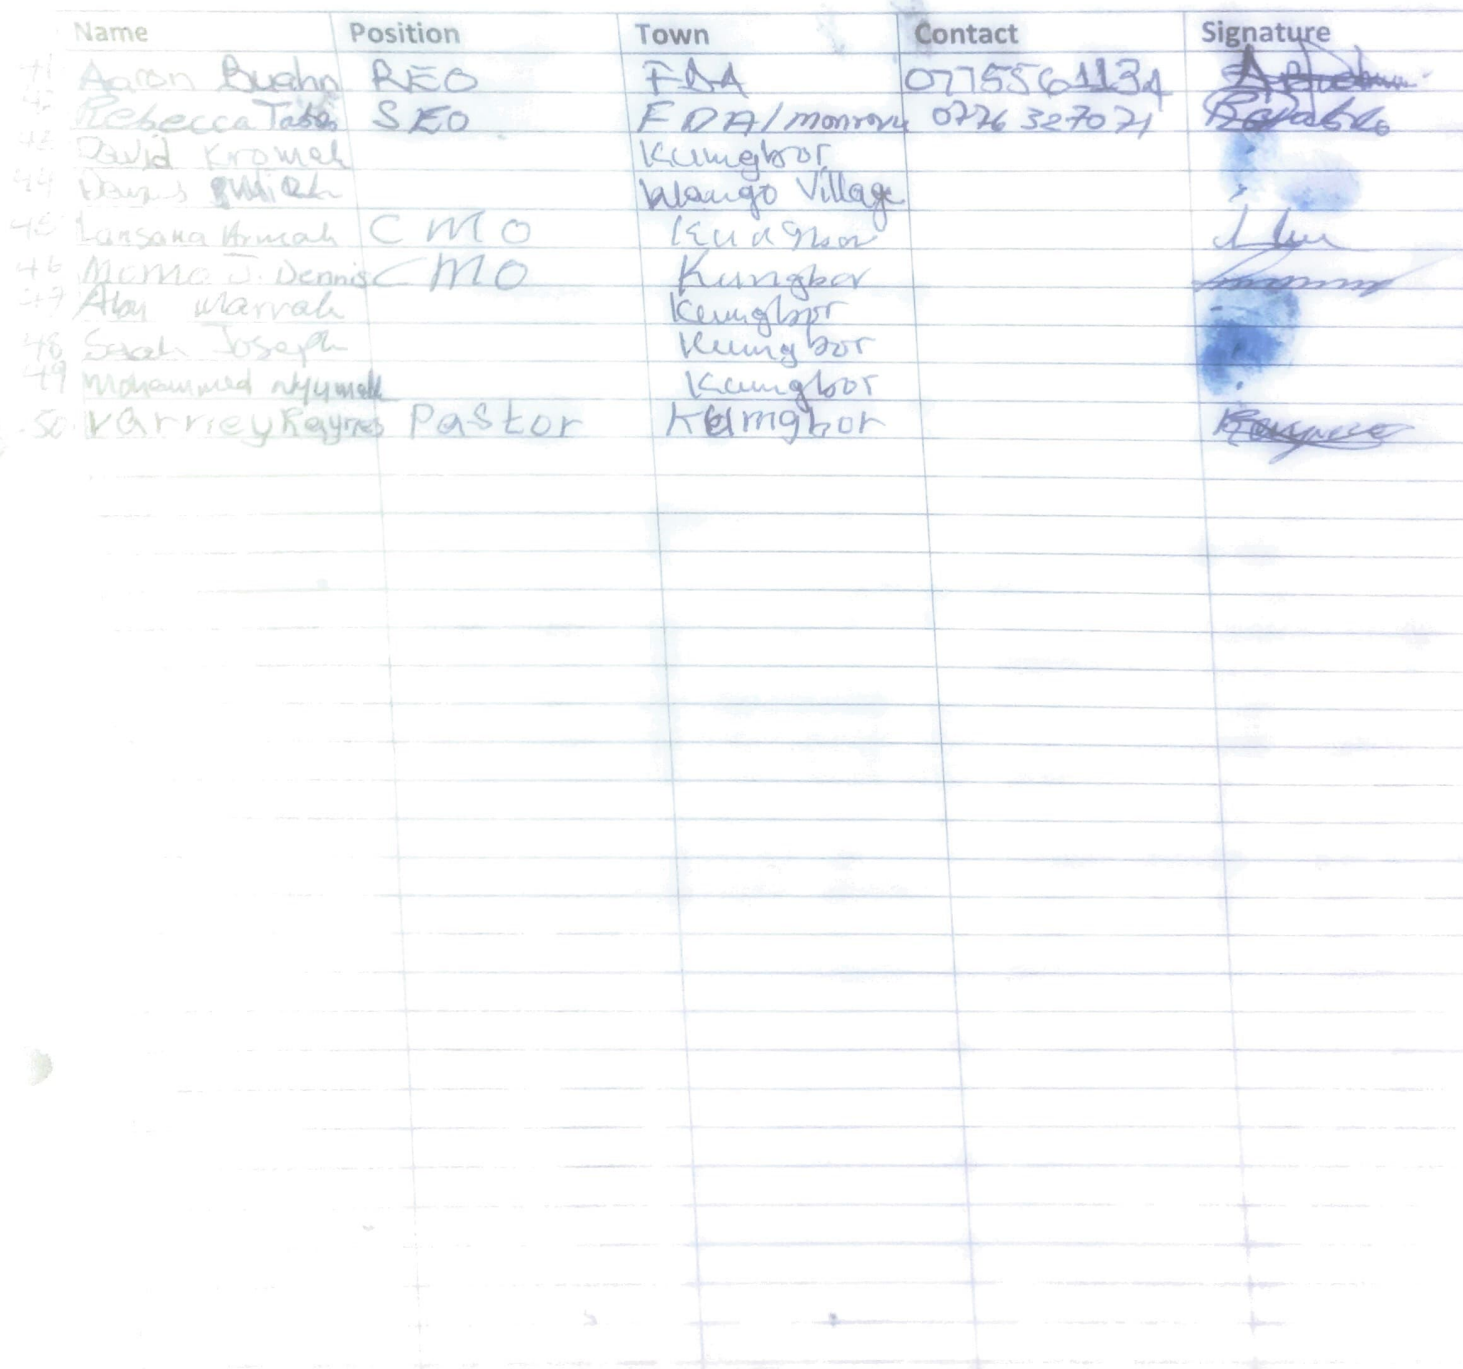 Name Position Town Contact Signature
41 Aaron Buahn REO FDA 0775561134
42 Rebecca SEO FDA/monrovia 0776327071
43 David Kromah Kungbor
44 Village
45 Lansana Armah CMO Kungbor
46 Momo J. Dennis CMO Kungbor
47 Abu Warrah Kungbor
48 Sarah Joseph Kungbor
49 Mohammed Kungbor
50 Varney Raynes Pastor Kungbor